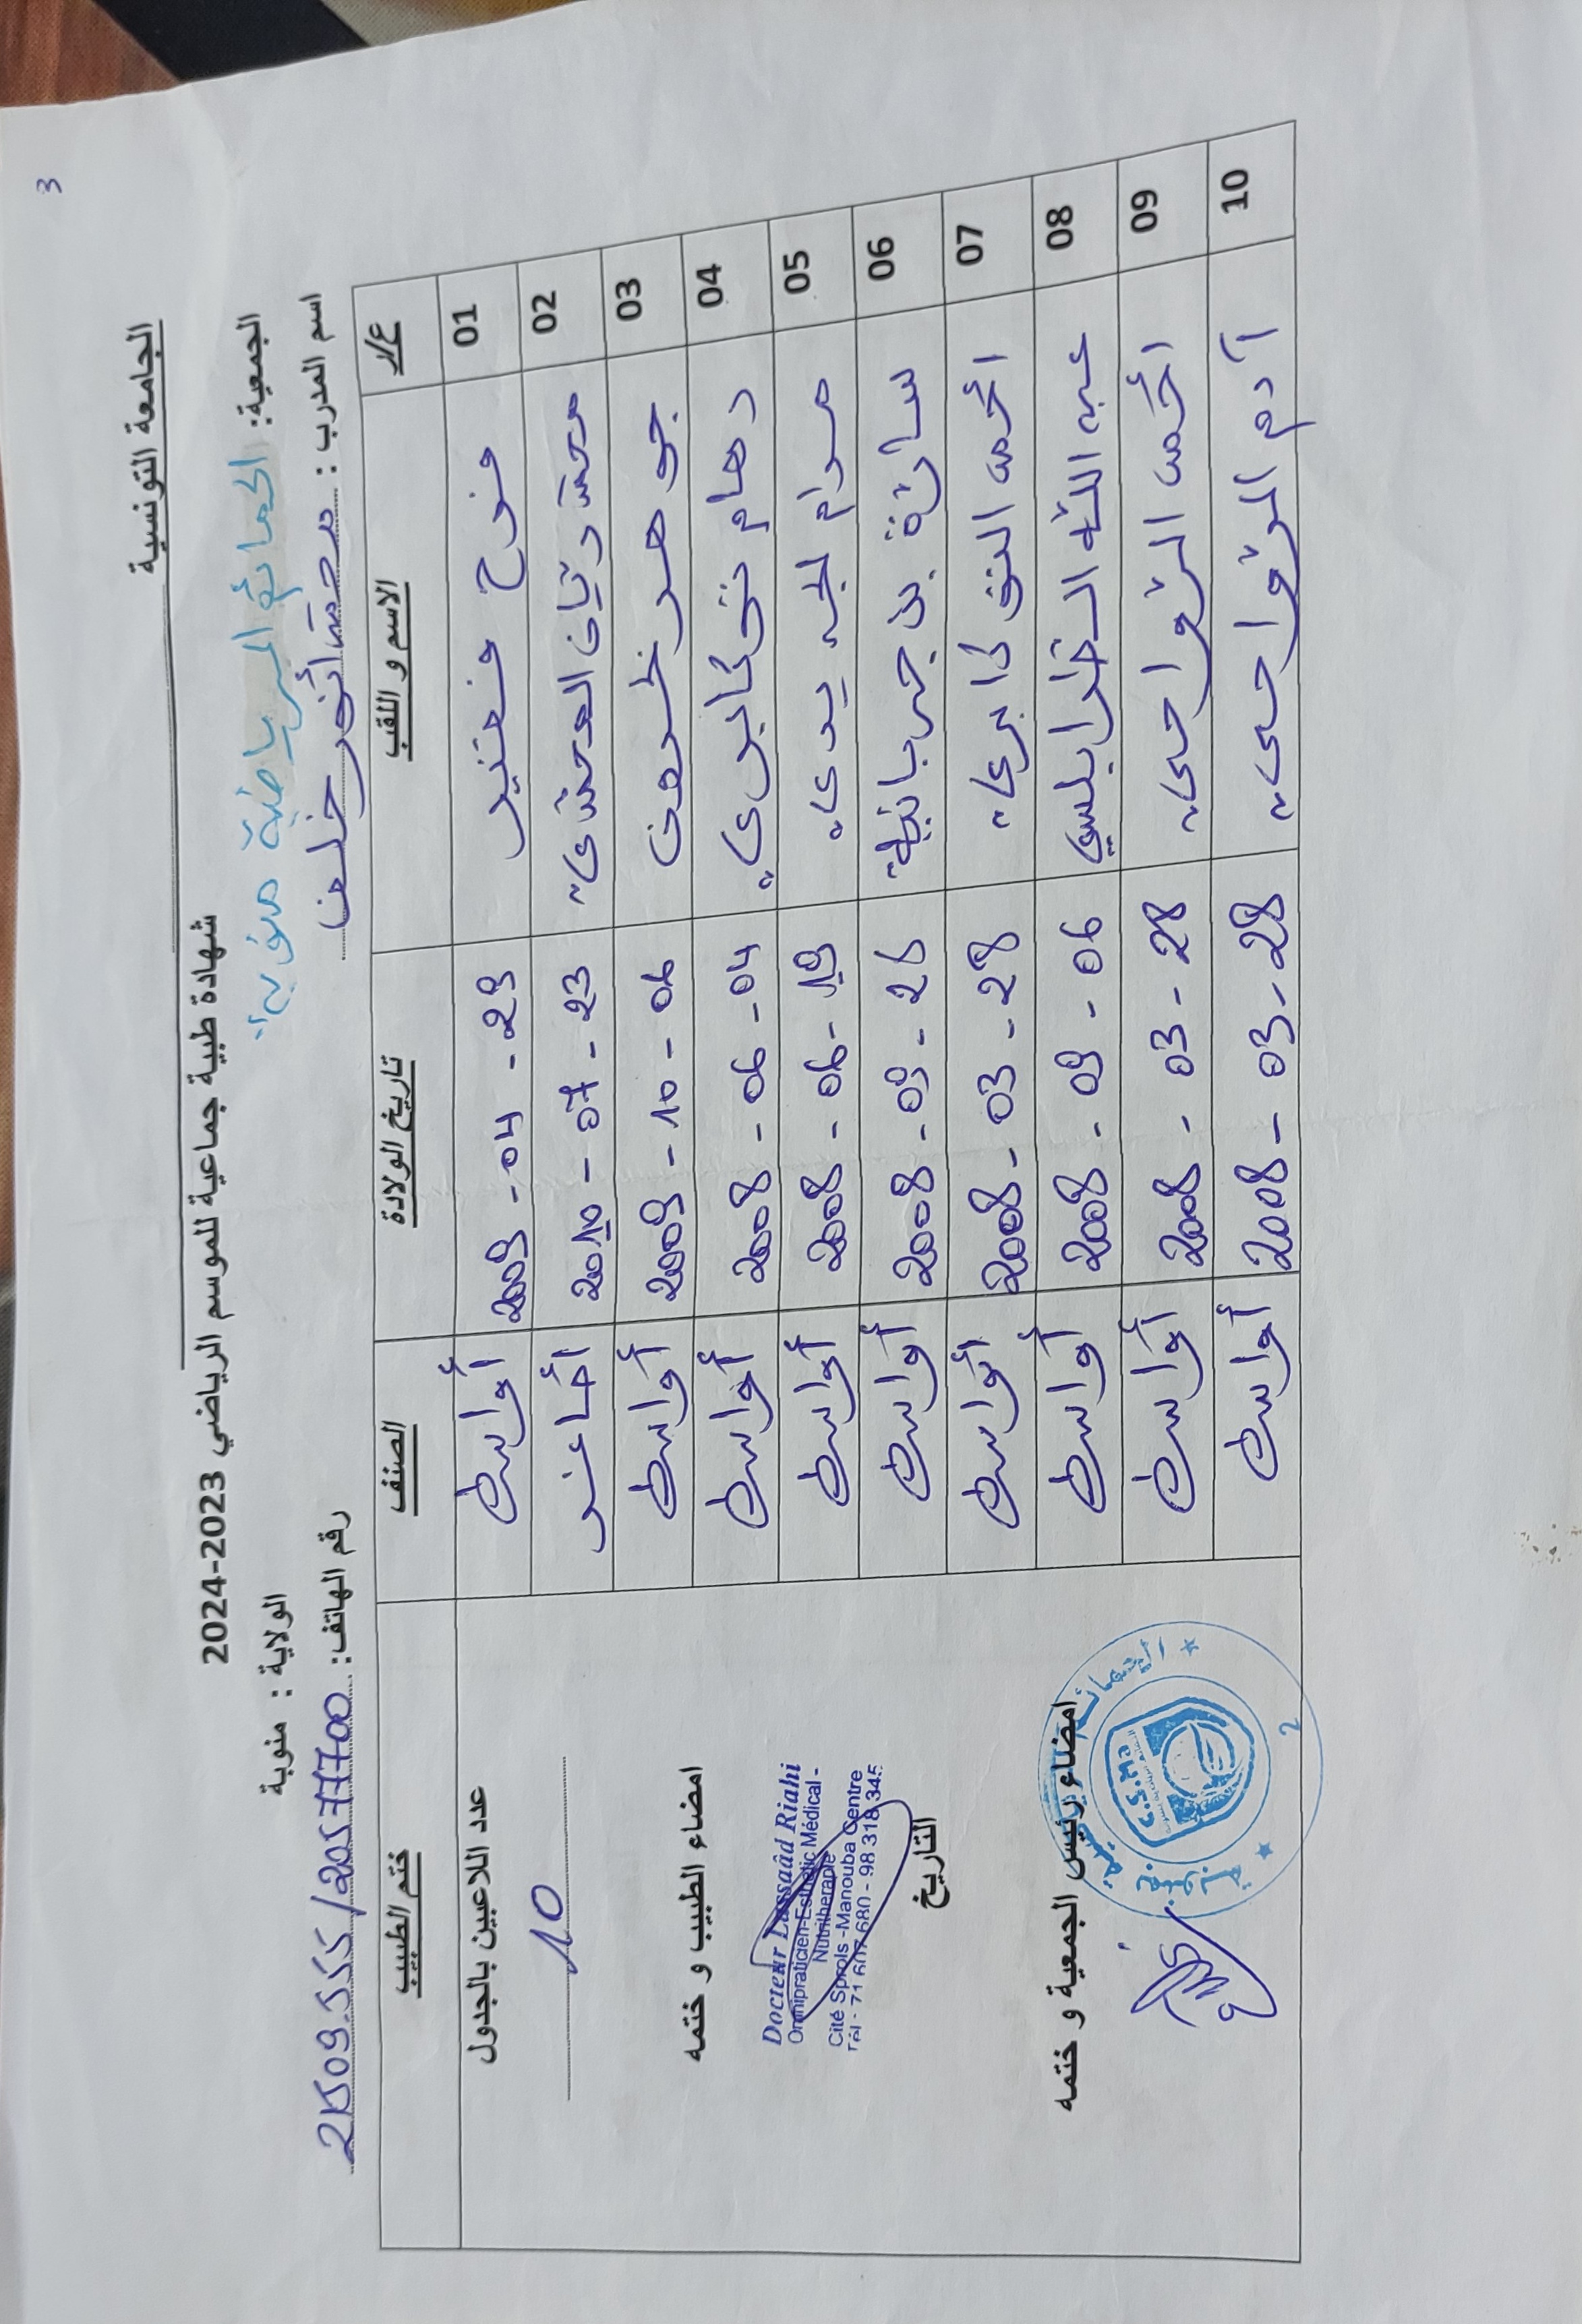 3
الجامعة التونسية
شهادة طبية جماعية للموسم الرياضي 2023-2024
الجمعية: الحمائم الرياضية منوبة الولاية : منوبة
اسم المدرب : محمد أنور خلف رقم الهاتف:
ع/ر الاسم و اللقب تاريخ الولادة الصنف ختم الطبيب
01 فرح 2009 - 04 - 29 أواسط
02 محمد ريان 2010 - 07 - 23 أصاغر
03 جوهر 2009 - 10 - 06 أواسط
04 2008 - 06 - 04 أواسط
05 مرام 2008 - 06 - 19 أواسط
06 سارة بن جربانية 2008 - 09 - 26 أواسط
07 أحمد 2008 - 03 - 28 أواسط
08 عبد الله الطرابلسي 2008 - 09 - 06 أواسط
09 أحمد الرواحي 2008 - 03 - 28 أواسط
10 آدم الرواحي 2008 - 03 - 28 أواسط
عدد اللاعبين بالجدول
10
امضاء الطبيب و ختمه
Docteur Lassaâd Riahi
Omnipraticien-Esthétic Médical -
Nutrithérapie
Cité Sprols -Manouba Centre
Tél - 71 607 680 - 98 318 345
التاريخ
امضاء رئيس الجمعية و ختمه
C.S.M